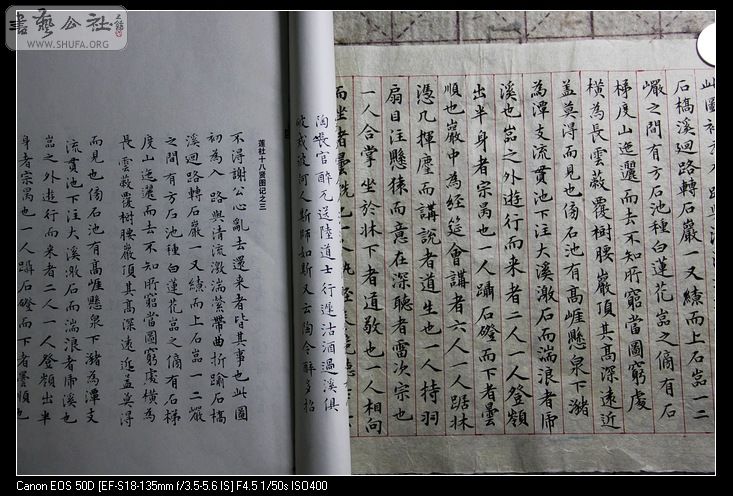 書藝公社
WWW.SHUFA.ORG
此圖初
石橋溪迴路轉石巖一又績而上石嵓一二
巖之間有方石池種白蓮花嵓之傍有石
梯度山迤邐而去不知所窮當圖窮處
橫為長雲蔽覆樹腰巖頂其高深遠近
蓋莫得而見也傍石池有高崕懸泉下潴
為潭支流貫池下注大溪激石而湍浪者虎
溪也嵓之外遊行而来者二人一人登領
出半身者宗昺也一人躡石磴而下者曇
順也巖中為經筵會講者六人一人踞牀
憑几揮麈而講説者道生也一人持羽
扇目注懸猿而意在深聽者雷次宗也
一人合掌坐於牀下者道敬也一人相向
而坐者曇詵也一人
陶 官醉兀送陸道士行遲沽酒過溪俱
破戒彼何人斯師如斯又云陶令醉多招
蓮社十八贤图记之三
不得謝公心亂去還来者皆其事也此圖
初為入路與清流激湍縈帶曲折踰石橋
溪迴路轉石巖一又績而上石嵓二巖
之間有方石池種白蓮花嵓之傍有石梯
度山迤邐而去不知所窮當圖窮處橫為
長雲蔽覆樹腰巖頂其高深遠近蓋莫得
而見也傍石池有高崕懸泉下潴為潭支
流貫池下注大溪激石而湍浪者虎溪也
嵓之外遊行而来者二人一人登領出半
身者宗昺也一人躡石磴而下者曇順也
Canon EOS 50D [EF-S18-135mm f/3.5-5.6 IS] F4.5 1/50s ISO400